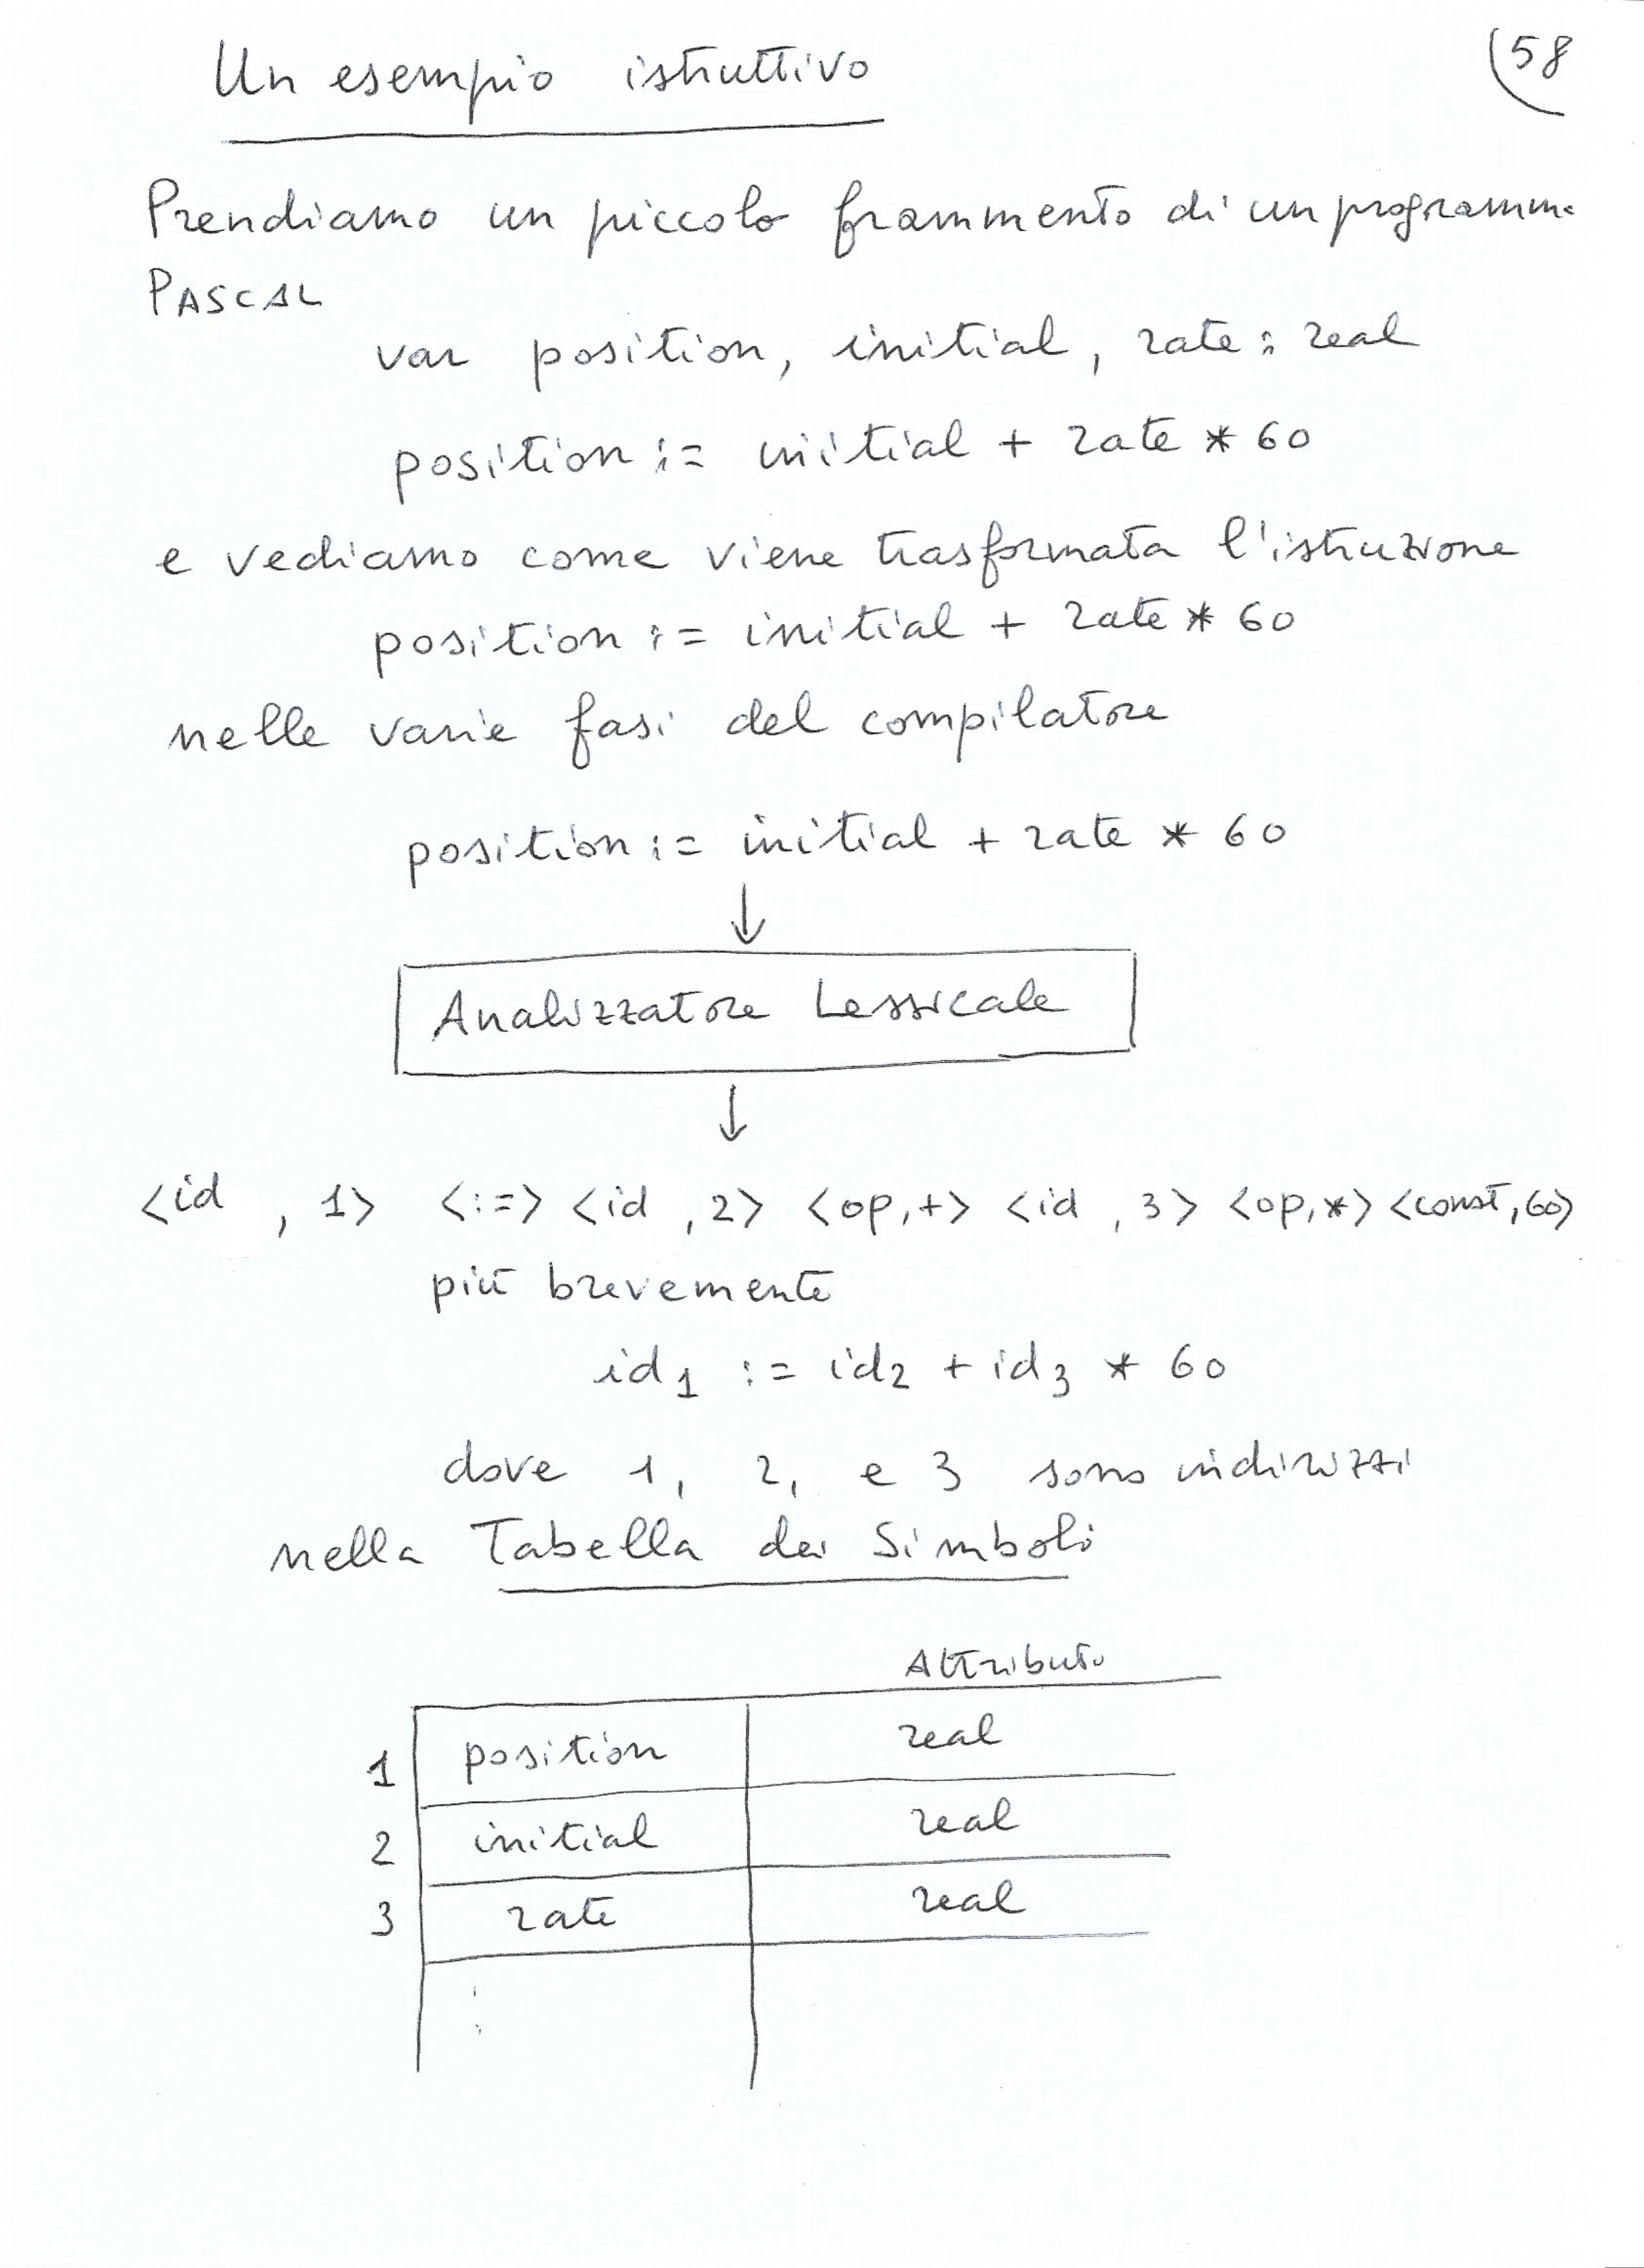 Un esempio istruttivo
58
Prendiamo un piccolo frammento di un programma
PASCAL
var position, initial, rate : real
position := initial + rate * 60
e vediamo come viene trasformata l'istruzione
position := initial + rate * 60
nelle varie fasi del compilatore
position := initial + rate * 60
↓
Analizzatore Lessicale
↓
<id , 1> <:=> <id , 2> <op,+> <id , 3> <op,*> <const,60>
più brevemente
id1 := id2 + id3 * 60
dove 1, 2, e 3 sono indirizzi
nella Tabella dei Simboli
Attributo
1 position real
2 initial real
3 rate real